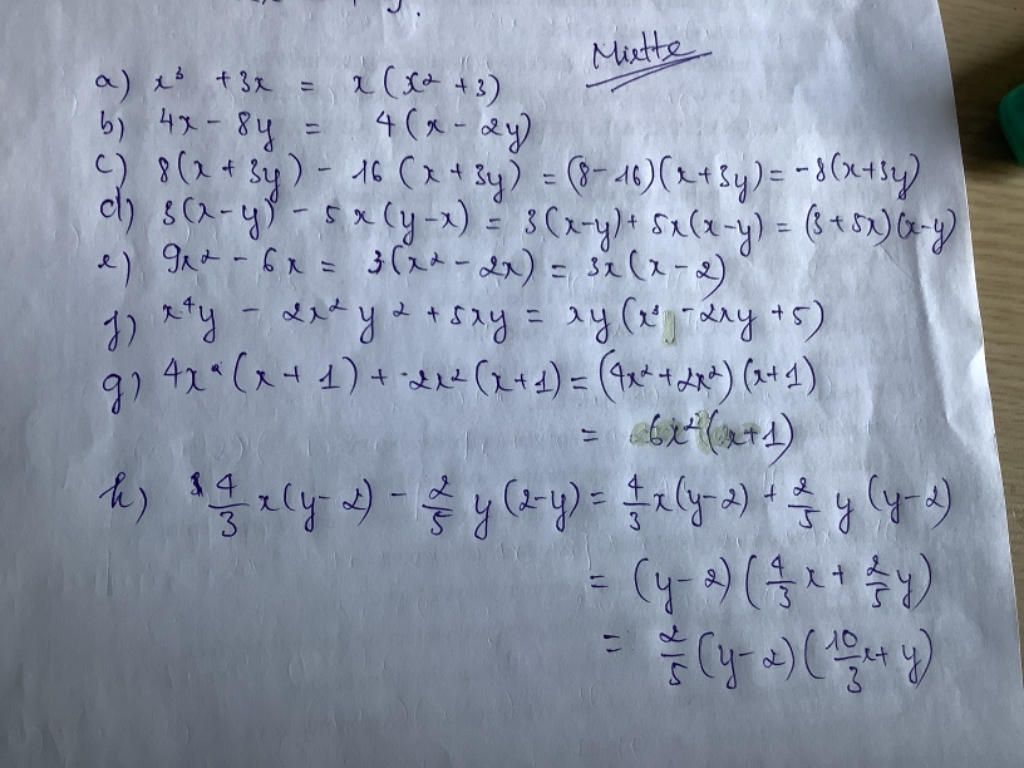 Miette
a) x³ + 3x = x(x² + 3)
b) 4x - 8y = 4(x - 2y)
c) 8(x + 3y) - 16(x + 3y) = (8-16)(x+3y) = -8(x+3y)
d) 3(x-y) - 5x(y-x) = 3(x-y) + 5x(x-y) = (3+5x)(x-y)
e) 9x² - 6x = 3(x² - 2x) = 3x(x-2)
f) x⁴y - 2x²y² + 5xy = xy(x³ - 2xy + 5)
g) 4x²(x+1) + 2x²(x+1) = (4x² + 2x²)(x+1)
= 6x²(x+1)
h) 4/3 x(y-2) - 2/5 y(2-y) = 4/3 x(y-2) + 2/5 y(y-2)
= (y-2)(4/3 x + 2/5 y)
= 2/5 (y-2)(10/3 x + y)